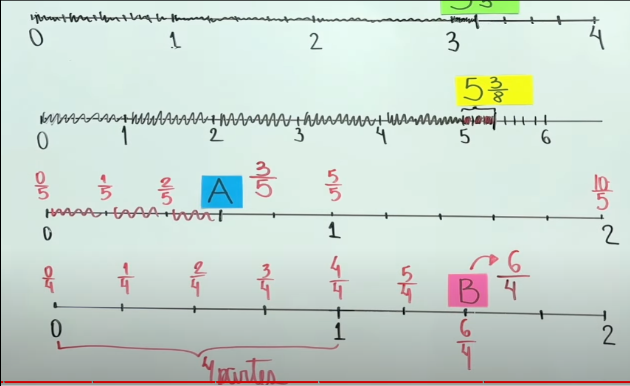 0 1 2 3 4
5 3/8
0 1 2 3 4 5 6
0/5 1/5 2/5 A 3/5 5/5 10/5
0 1 2
0/4 1/4 2/4 3/4 4/4 5/4 B 6/4
0 1 6/4 2
4 partes